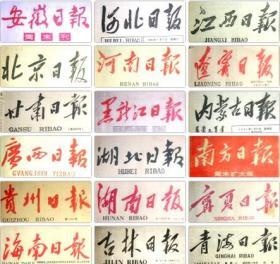 安徽日報
周末刊
河北日報
HEBEI RIBAO
江西日報
JIANGXI RIBAO
北京日报
河南日報
HENAN RIBAO
遼寧日報
LIAONING RIBAO
甘肃日報
GANSU RIBAO
黑龙江日報
内蒙古日報
廣西日報
GVANGJSIH YIZBAU
湖北日報
HUBEI RIBAO
南方日報
周末扩大版
貴州日報
GUIZHOU RIBAO
湖南日報
HUNAN RIBAO
寧夏日報
NINGXIA RIBAO
海南日報
吉林日報
JILIN RIBAO
青海日報
QINGHAI RIBAO